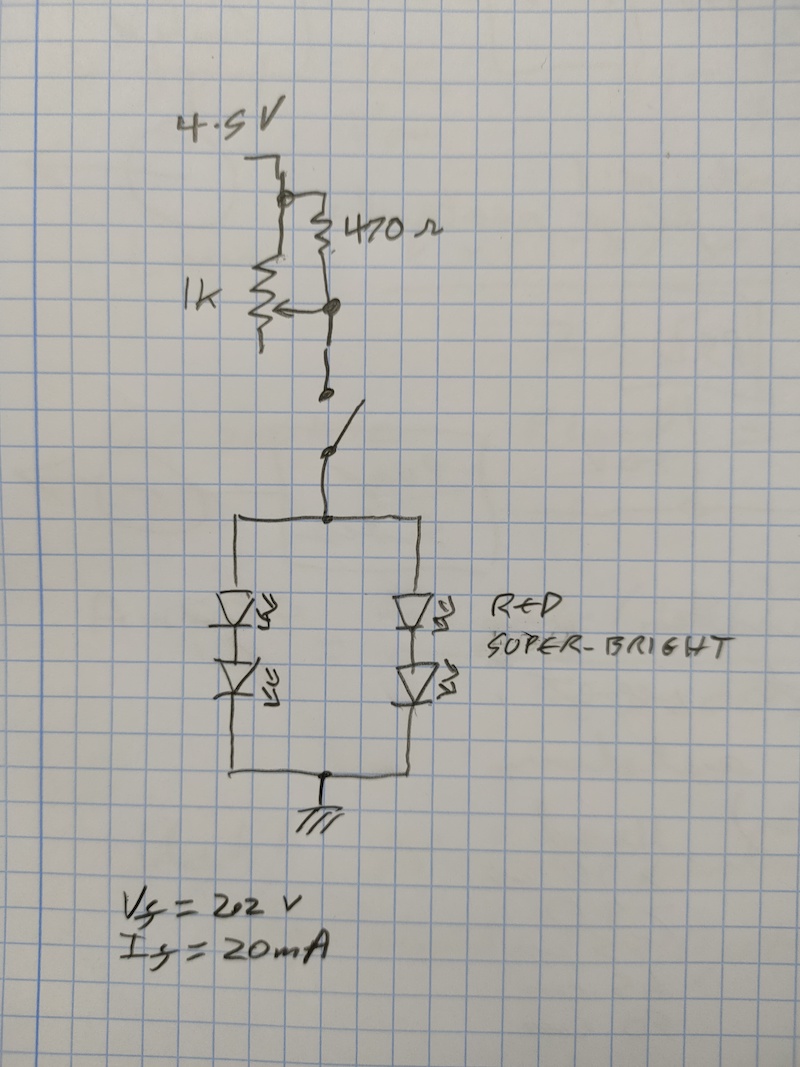 4.5V
470 Ω
1k
RED
SUPER-BRIGHT
Vf = 2.2 V
If = 20mA